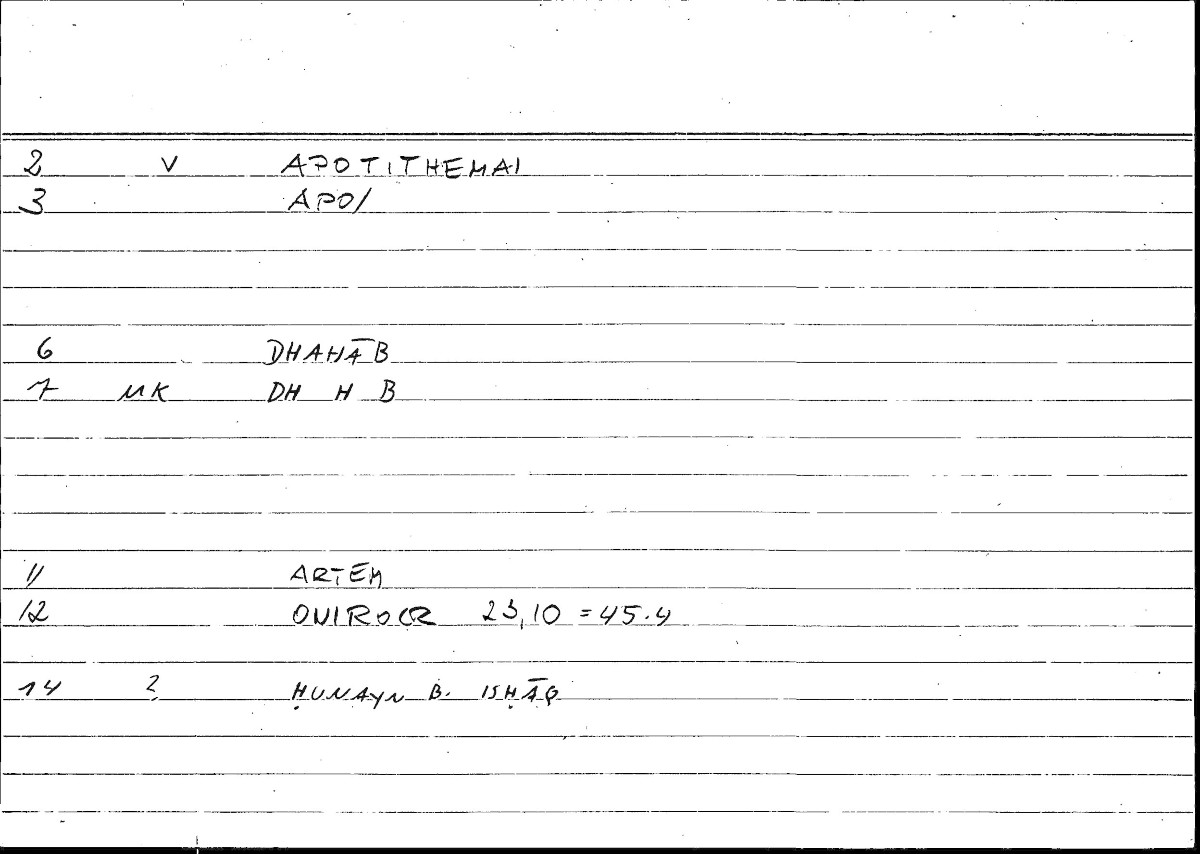 2 V APOTITHEMAI
3 APO/
6 DHAHĀB
7 MK DH H B
11 ARTEM
12 ONIROCR 23,10 = 45.4
14 2 ḤUNAYN B. ISḤĀQ